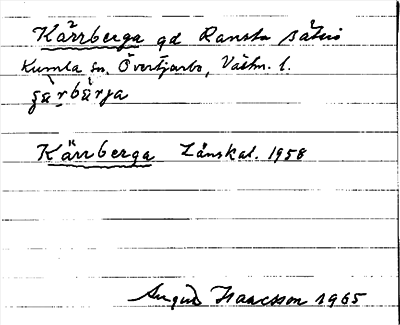 Kärrberga gd Ransta säteri
Kumla sn. Övertjurbo, Västm. l.
Kärrberga Länskal. 1958
Isaacsson 1965